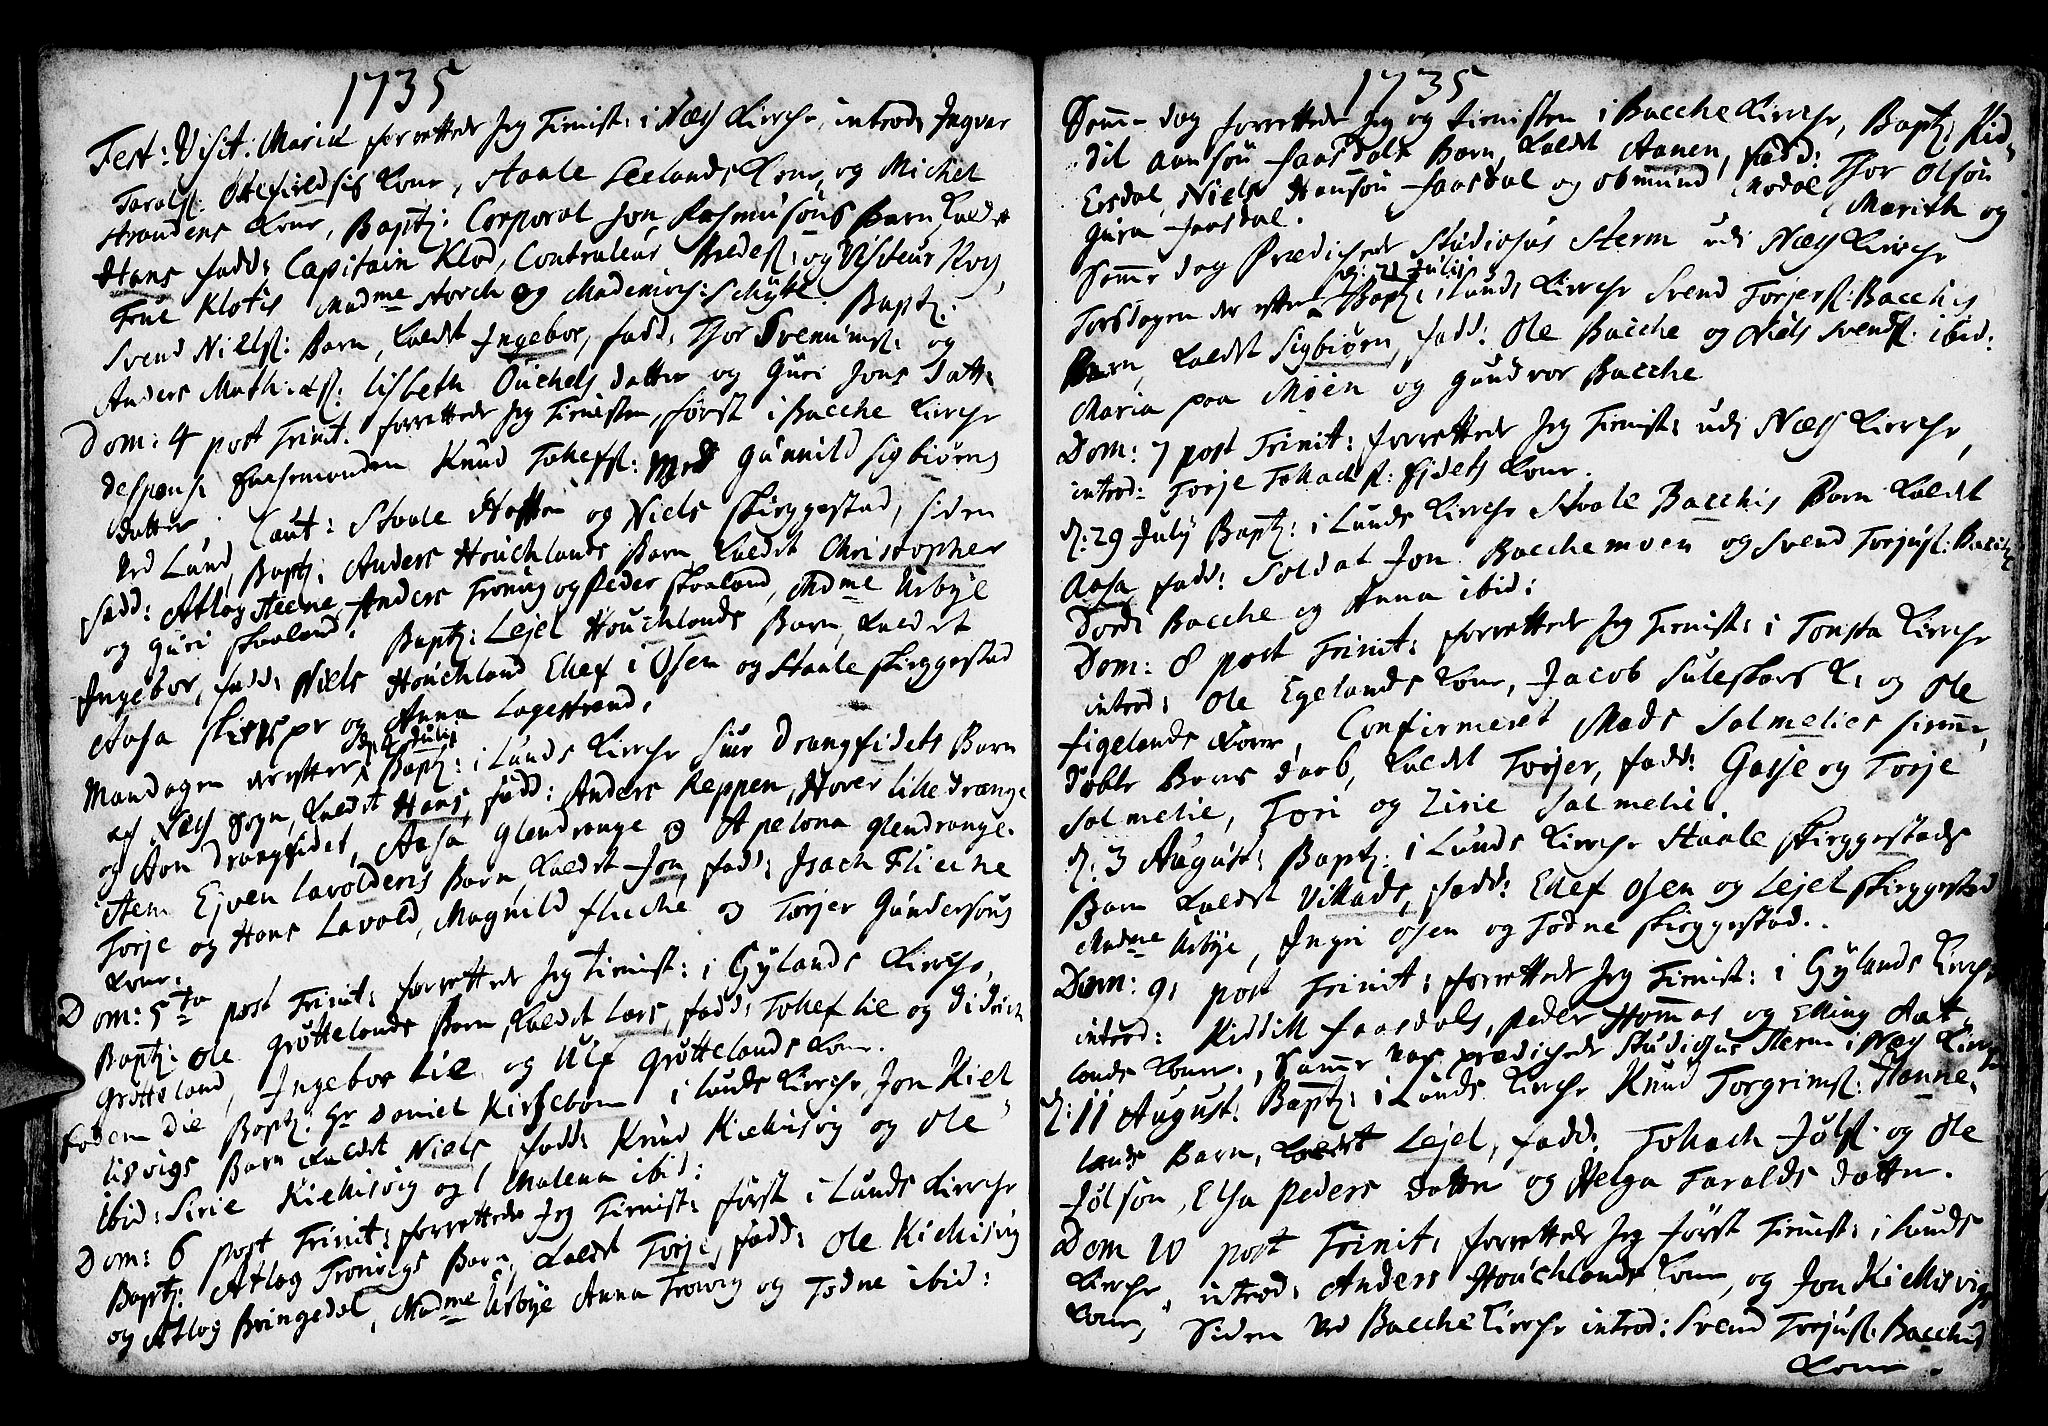 1735
Fest: Visit: Mariæ forrettede Jeg Tienist: i Næss Kirche, introd: Ingvar
Taralss: Kone, Staale Seelands Kone, og Michel
Strandens Kone, Baptz: Corporal Jon Rasmusøns Barn, kaldet
Hans fadd: Capitain Klod, Contraleur og Visiteur Roy,
Frue Klotis Madme Storch og Schytt. Baptz:
Svend Nielss: Barn, kaldet Ingebor, fadd: Thor og
Anders Mathiæss: Lisbeth datter og Guri Jons Datt:
Dom: 4 post Trinit: forrettede Jeg Tienisten, først i Bacche Kirche
despons: Knud Tollefss: Med Gunnild Sigbiørns
datter. Caut: Staale og Niels Skiggestad, siden
ved Lund, Baptz: Anders Houchlands Barn kaldet Christopher
fadd: Atlog Steene, Anders Tronvig og Peder Skaaland, Madme Urbye
og Guri Skaaland. Baptz: Lejel Houchlands Barn, kaldet
Ingebor, fadd: Niels Houchland Ellef i Osen og Staale Skiggestad
Aasa og Anna Lagestrand.
Mandagen derefter d: 4 Julij Baptz: i Lunds Kirche Siur Drangfidets Barn
af Næss Sogn, kaldet Hans, fadd: Anders Reppen, Hover lille Drange
og Aon Drangfidet, Aasa Glendrange og Apelona Glendrange.
Item Ejven Lavolderis Barn, kaldet Jon, fadd: Isach Fliche
Torje og Hans Lavold, Magnild Fliche og Torjer Gundersøns
Kone.
Dom: 5ta post Trinit: forrettede Jeg tienist: i Gylands Kirche,
Baptz: Ole Grøttelands Barn kaldet Lars, fadd: Tollef Lie og Didrich
Grøtteland, Ingebor Lie og Ulf Grøttelands Kone.
Eodem die Baptz: Hr Daniel Kirsebom i Lunds Kirche, Jon Kiel-
lisvigs Barn kaldet Niels fadd: Knud Kiellisvig og Ole
ibid: Sirie Kiellisvig og Malena ibid:
Dom: 6 post Trinit: forrettede Jeg Tienist: først i Lunds Kirche
Baptz: Atlog Tronvigs Barn, kaldet Torje, fadd: Ole Kiellisvig
og Atlog Bringedal, Madme Urbye Anna Tronvig og Todne ibid:
1735
Samme dag forrettede Jeg og tienisten i Bacche Kirche, Baptz: Kid-
dil Aansøn Faasdals Barn, kaldet Aanen, fadd: Thor Olsøn
Ersdal, Niels Hansøn Faasdal og Obmund Modal, Marith og
Gura Faasdal.
Samme dag Prædichede Studiosus Sterm udi Næss Kirche
Torsdagen der efter d: 21 Julij Baptz: i Lunds Kirche Svend Torjerss: Bacchis
Barn, kaldet Sigbiørn, fadd: Ole Bacche og Niels Svendss: ibid:
Maria paa Moen og Gundvor Bacche
Dom: 7 post Trinit: forrettede Jeg Tienist: udi Næss Kirche,
introd: Torje Tollachss: Fidets Kone.
d: 29 July Baptz: i Lunds Kirche Staale Bacchis Barn kaldet
Aasa, fadd: Soldat Jon Bacchemoen og Svend Torjuss: Bacche
Dordi Bacche og Anna ibid:
Dom: 8 post Trinit: forrettede Jeg Tienist: i Tonsta Kirche
introd: Ole Egelands Kone, Jacob Suleskars K: og Ole
Figelands Kone, Confirmeret Mads Salmelies hiemme,
døbte Barns daab, kaldet Torjer, fadd: Gasse og Torje
Salmelie, Tori og Zirie Salmelie.
d: 3 August: Baptz: i Lunds Kirche Staale Skiggestads
Barn kaldet Villads, fadd: Ellef Osen og Lejel Skiggestad
Madme Urbye, Ingri Osen og Todne Skiggestad.
Dom: 9: post Trinit: forrettede Jeg Tienist: i Gylands Kirche
introd: Kiddill Faasdals, Peder Hommes og Elling Aat-
lands Koner., Samme Dag prædichede Studiosus Sterm i Næss Kirche
d: 11 August: Baptz: i Lunds Kirche Knud Torgrimss: Hanne-
lands Barn, kaldet Lejel, fadd: Tollach Jølss: og Ole
Jølsøn, Elsa Peders datter og Helga Taralds datter.
Dom 10 post Trinit: forrettede Jeg først Tienist: i Lunds
Kirche, introd: Anders Houchlands Kone, og Jon Kiellisvigs
Kone, Siden ved Bacche Kirche introd: Svend Torjuss: Bacchis
Kone.